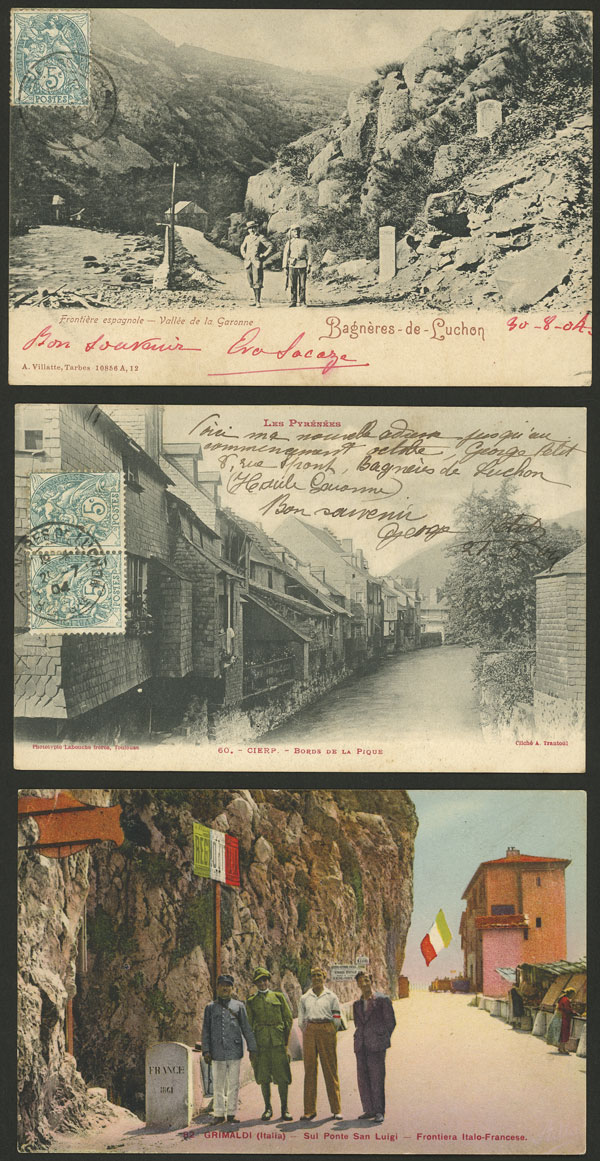 5c
POSTES
Frontière espagnole — Vallée de la Garonne
Bagnères-de-Luchon
30-8-04.
Bon Souvenir Eva Lacaze
A. Villatte, Tarbes 10856 A, 12
Les Pyrénées
Voici ma nouvelle adresse jusqu'au
commencement octobre, George Petit
8, rue Spont, Bagnères de Luchon
(Haute Garonne)
Bon souvenir
George
5c
5c
04
60. - CIERP. - Bords de la Pique
Phototypie Labouche frères, Toulouse
Cliché A. Trantoul
FRANCE
1861
82 GRIMALDI (Italia) — Sul Ponte San Luigi — Frontiera Italo-Francese.